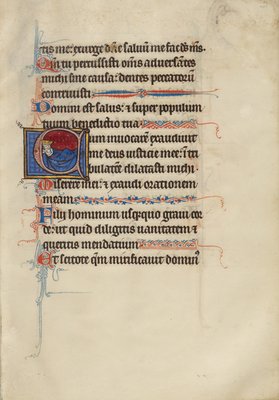 ctis me: exurge dñe saluum me fac ds ms.
Qm̃ tu percussisti om̃s aduersantes
michi sine causa: dentes peccatorũ
contriuisti
Domini est salus: & super populum
tuum benedictio tua.
Cum inuocarem exaudiuit
me deus iusticie mee: ĩ tri
bulatiõe dilatasti michi.
Miserere mei: & exaudi orationem
meam.
Filij hominum usq̃quo graui cor
de: ut quid diligitis uanitatem &
queritis mendatium
Et scitote qm̃ mirificauit dominũ